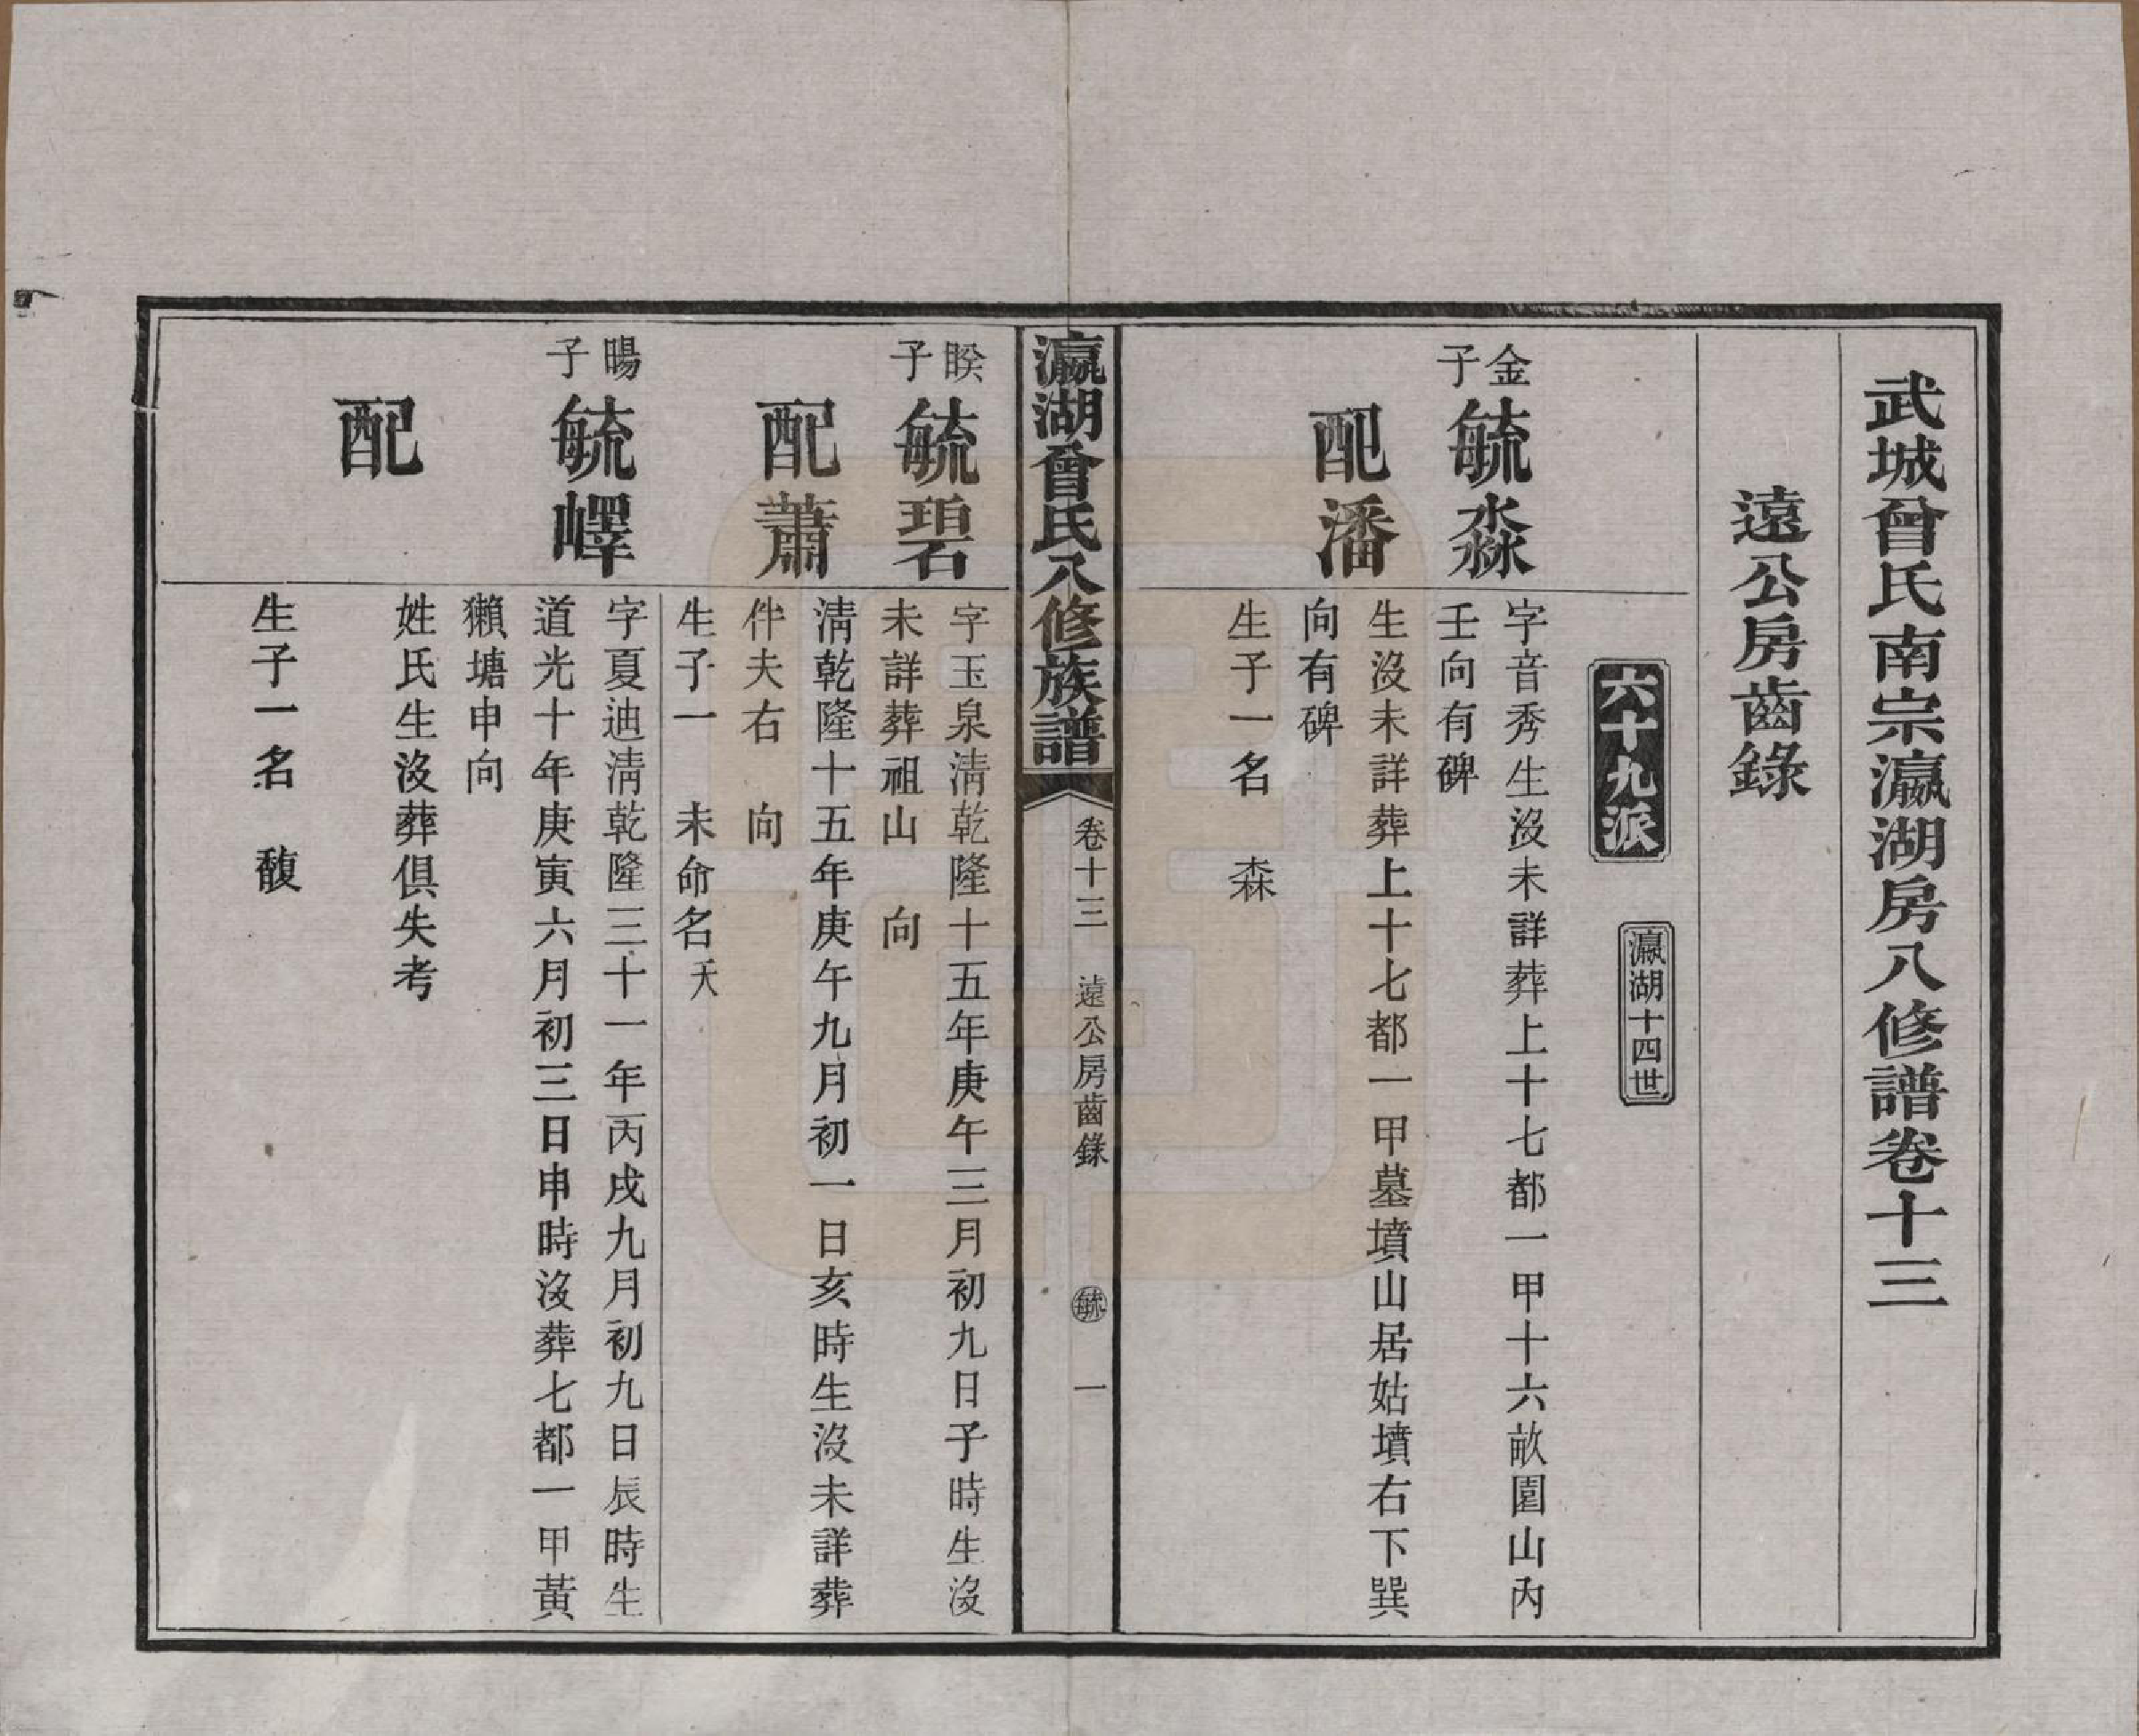 武城曾氏南宗瀛湖房八修譜卷十三
遠公房齒錄
六十九派
瀛湖十四世
金子
毓淼
字音秀生沒未詳葬上十七都一甲十六畝園山內
壬向有碑
配潘
生沒未詳葬上十七都一甲墓墳山居姑墳右下巽
向有碑
生子一名 森
瀛湖曾氏八修族譜
卷十三
遠公房齒錄
毓
一
睽子
毓碧
字玉泉清乾隆十五年庚午三月初九日子時生沒
未詳葬祖山 向
配蕭
清乾隆十五年庚午九月初一日亥時生沒未詳葬
伴夫右 向
生子一 未命名夭
暘子
毓嶧
字夏迪清乾隆三十一年丙戌九月初九日辰時生
道光十年庚寅六月初三日申時沒葬七都一甲黃
獺塘申向
配
姓氏生沒葬俱失考
生子一名 馥